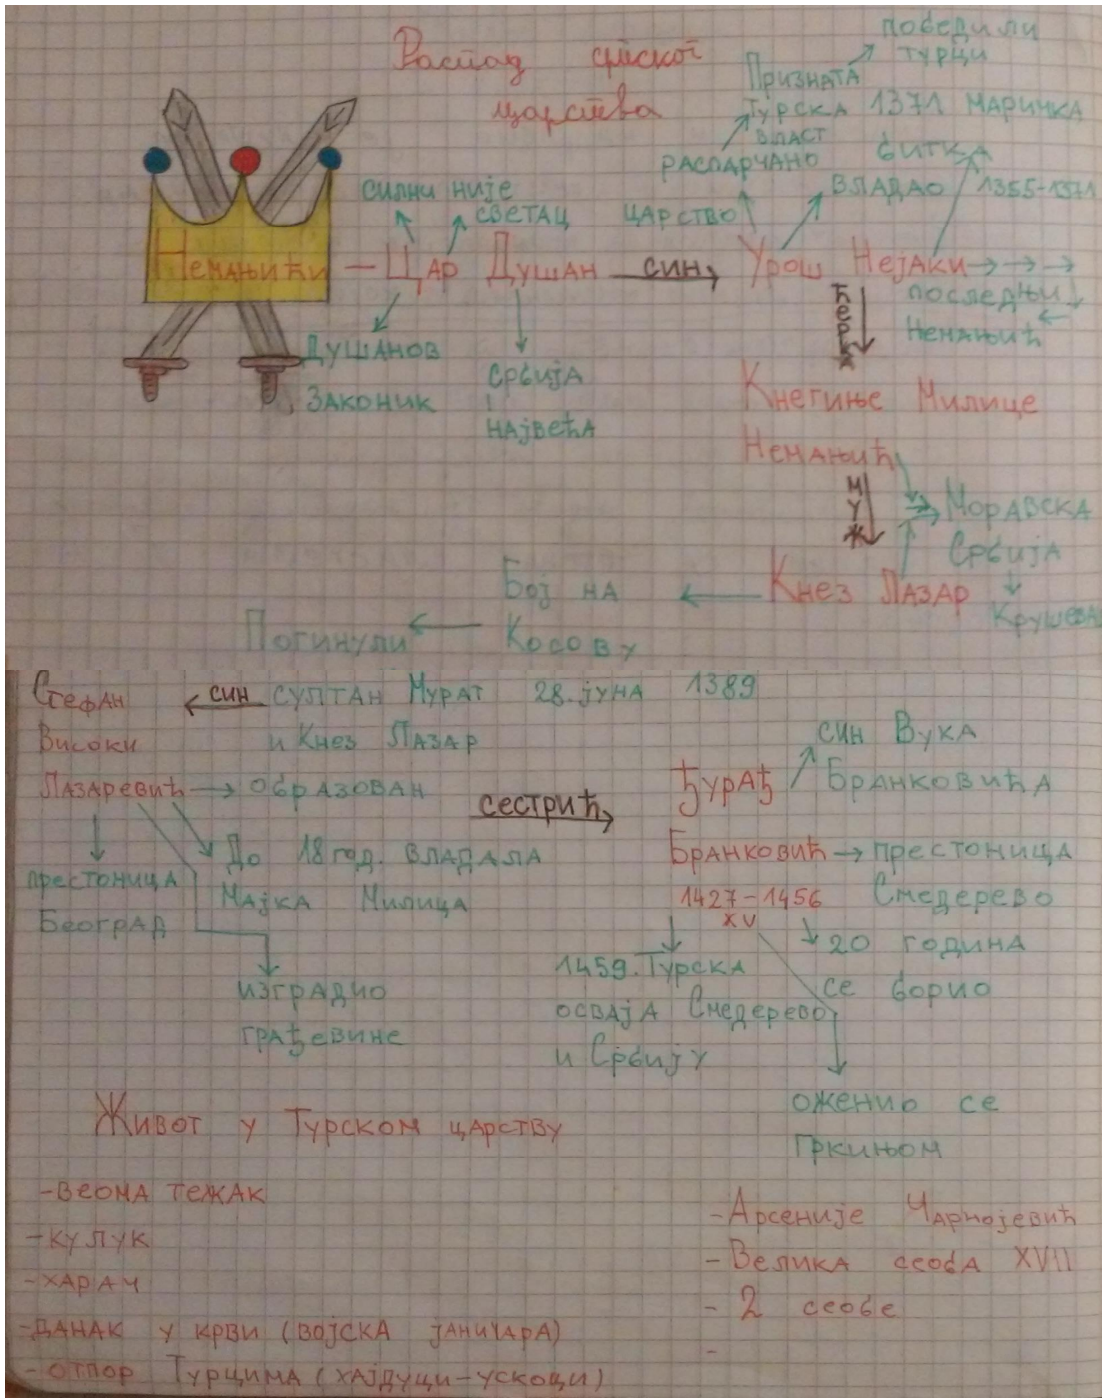 Распад српског
царства
победили
турци
Призната
Турска 1371 Маричка
власт битка
распарчано
царство
владао 1355-1371
силни није
светац
Немањићи – Цар Душан син Урош Нејаки
последњи
Немањић
ћерка
Душанов
Законик
Србија
највећа
Кнегиње Милице
Немањић
муж
Моравска
Србија
Крушева
Кнез Лазар
Бој на
Косову
Погинули
султан Мурат 28. јуна 1389
и Кнез Лазар
син
Стефан
Високи
Лазаревић
образован
престоница
Београд
До 18 год. владала
Мајка Милица
изградио
грађевине
сестрић
Ђурађ
Бранковић
1427-1456
XV
син Вука
Бранковића
престоница
Смедерево
20 година
се борио
1459. Турска
осваја Смедерево
и Србију
оженио се
Гркињом
Живот у Турском царству
-веома тежак
-кулук
-харач
-данак у крви (војска јаничара)
-отпор Турцима (хајдуци-ускоци)
-Арсеније Чарнојевић
-Велика сеоба XVII
-2 сеобе
-